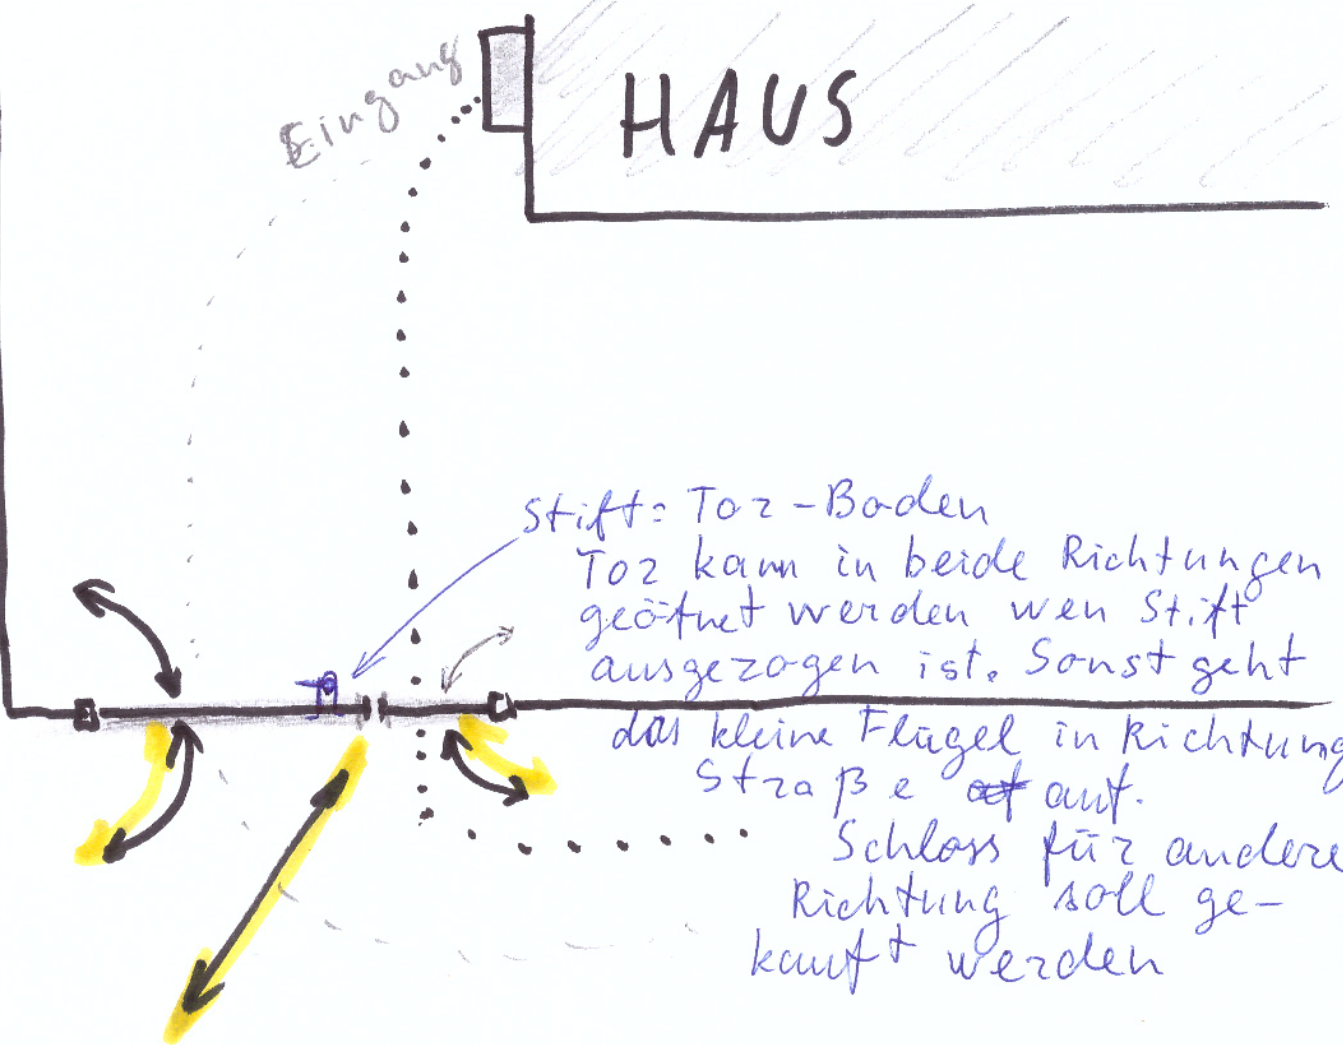 Eingang
HAUS
Stift: Tor-Boden
Tor kann in beide Richtungen
geöfnet werden wen Stift
ausgezogen ist. Sonst geht
das kleine Flügel in Richtung
Straße auf.
Schloss für andere
Richtung soll ge-
kauft werden